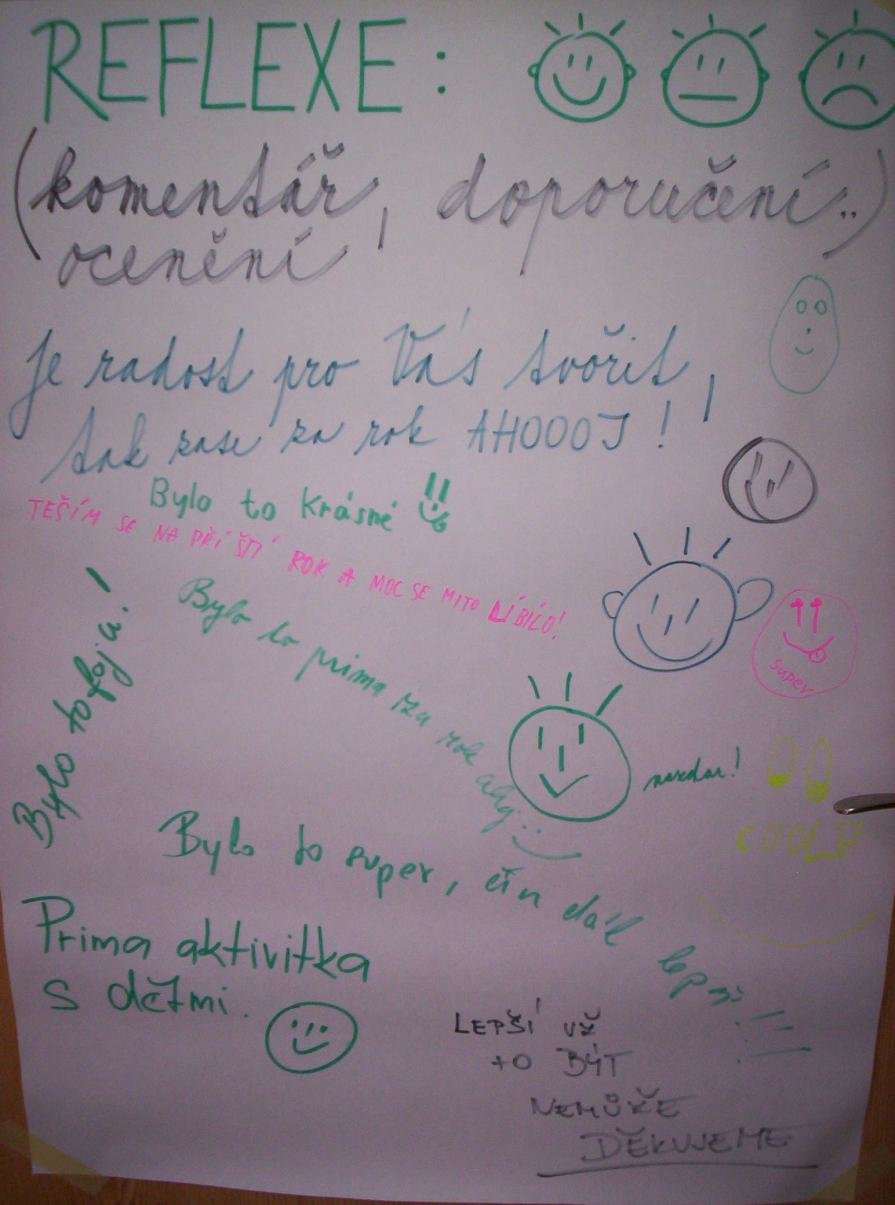 REFLEXE:
(komentář, doporučení..)
ocenění
Je radost pro Vás tvořit,
tak zase za rok AHOOOJ!
Bylo to krásné
TEŠÍM SE NA PŘÍŠTÍ ROK A MOC SE MITO LÍBÍLO!
super
Bylo to prima za rok ahoj..
Bylo to fajn!
nazdar!
COOL
Bylo to super, čím dál lepší!!!
Prima aktivitka
s dětmi.
LEPŠÍ UŽ
TO BÝT
NEMŮŽE
DĚKUJEME